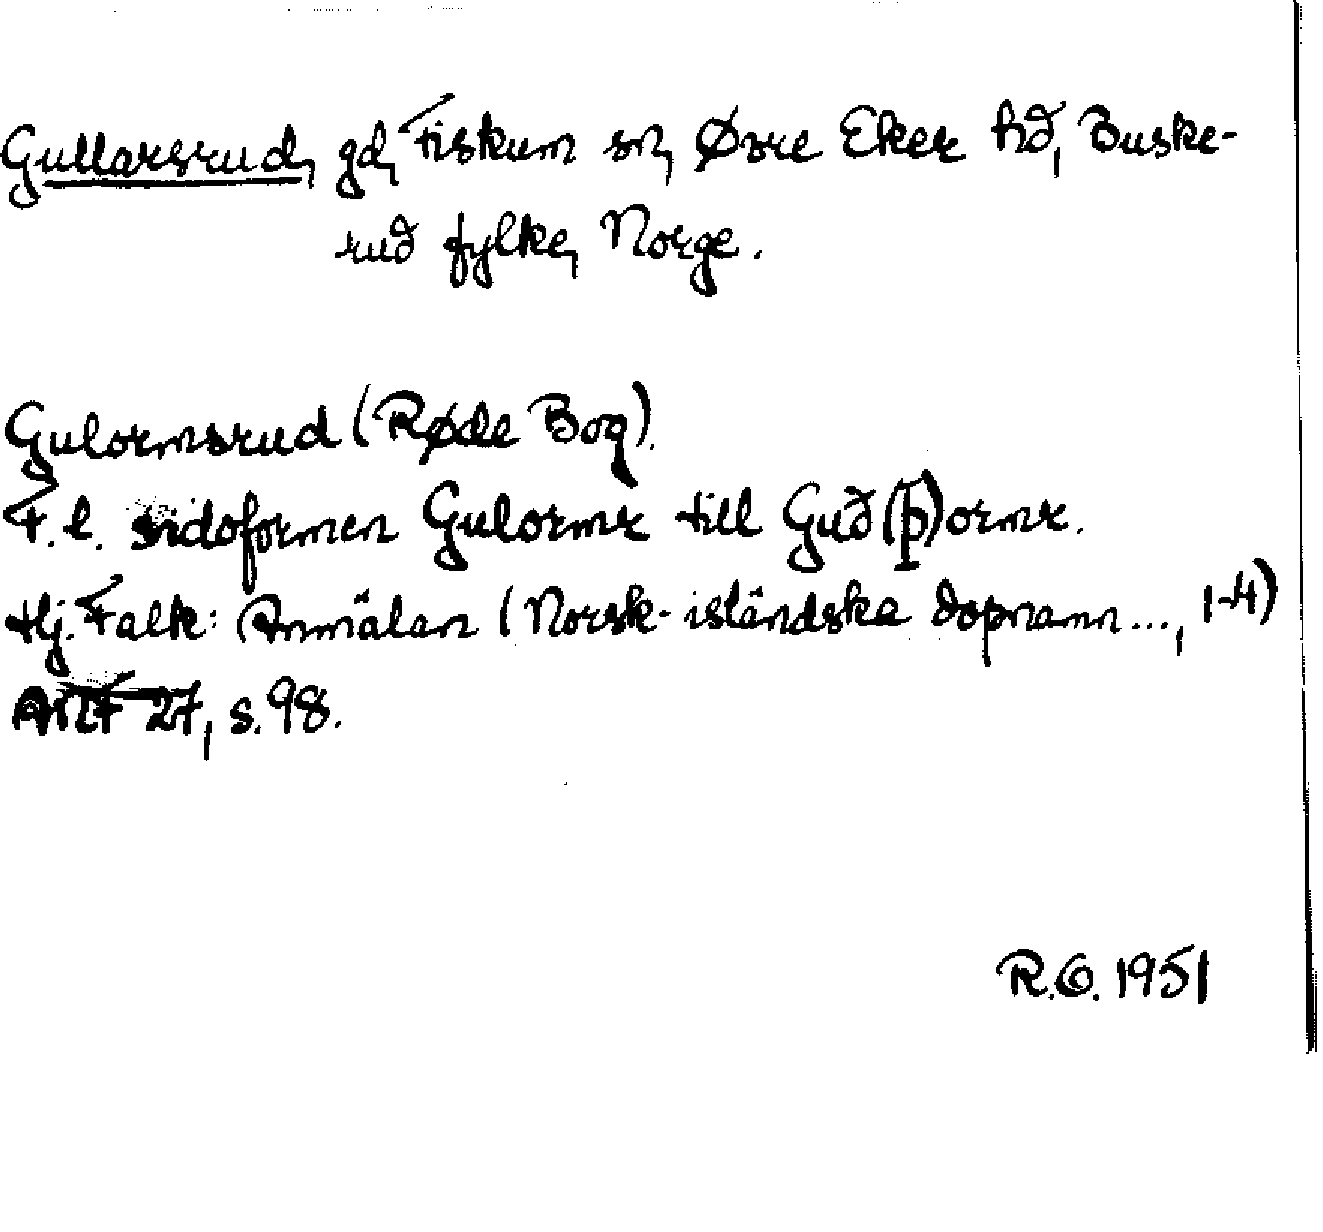 Gullarsrud, gd, Fiskum sn, Øvre Eker hd, Buske-
rud fylke, Norge.
Gulormsrud (Røde Bog).
F. l. sidoformen Gulormr till Guð(þ)ormr.
Hj. Falk: Anmälan (Norsk-isländska dopnamn..., 1-4)
ANF 27, s. 98.
R.O. 1951